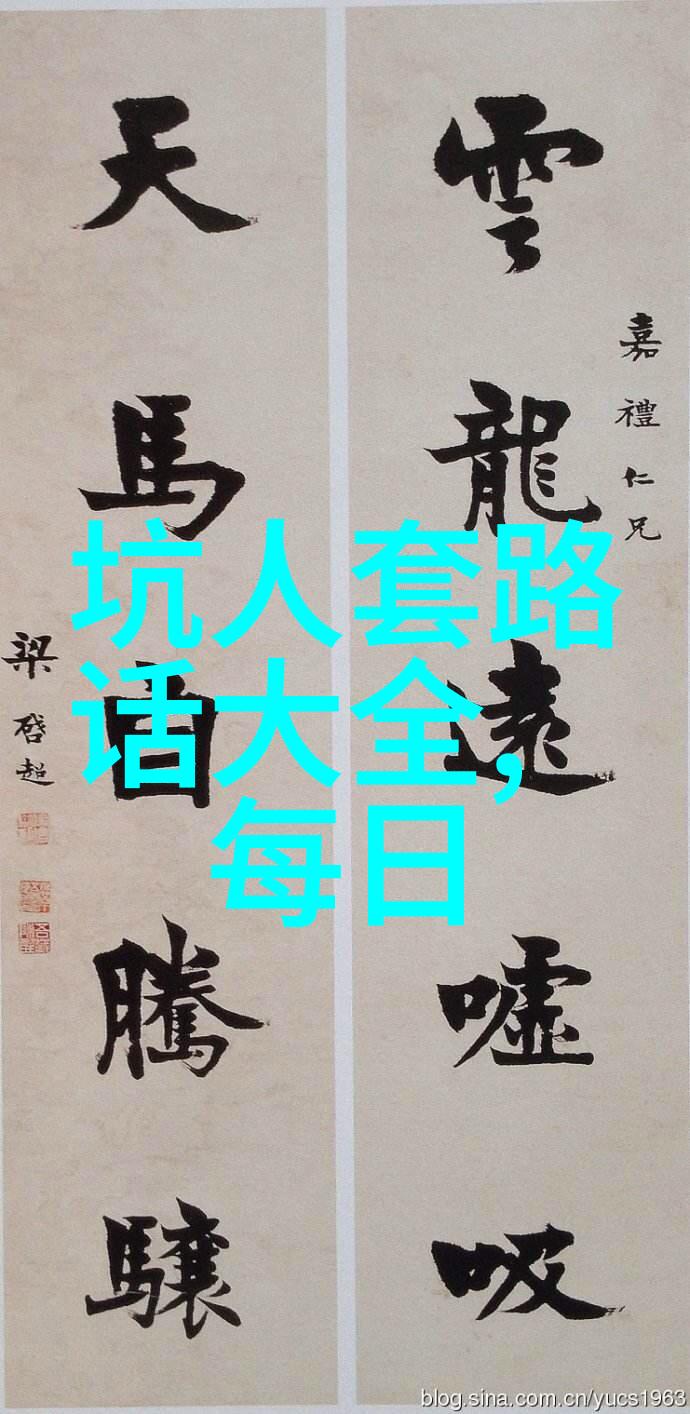 嘉禮仁兄
雲龍遠噓吸
天馬騰驤
梁啓超
坑人套路
话大全,
每日
blog.sina.com.cn/yucs1963